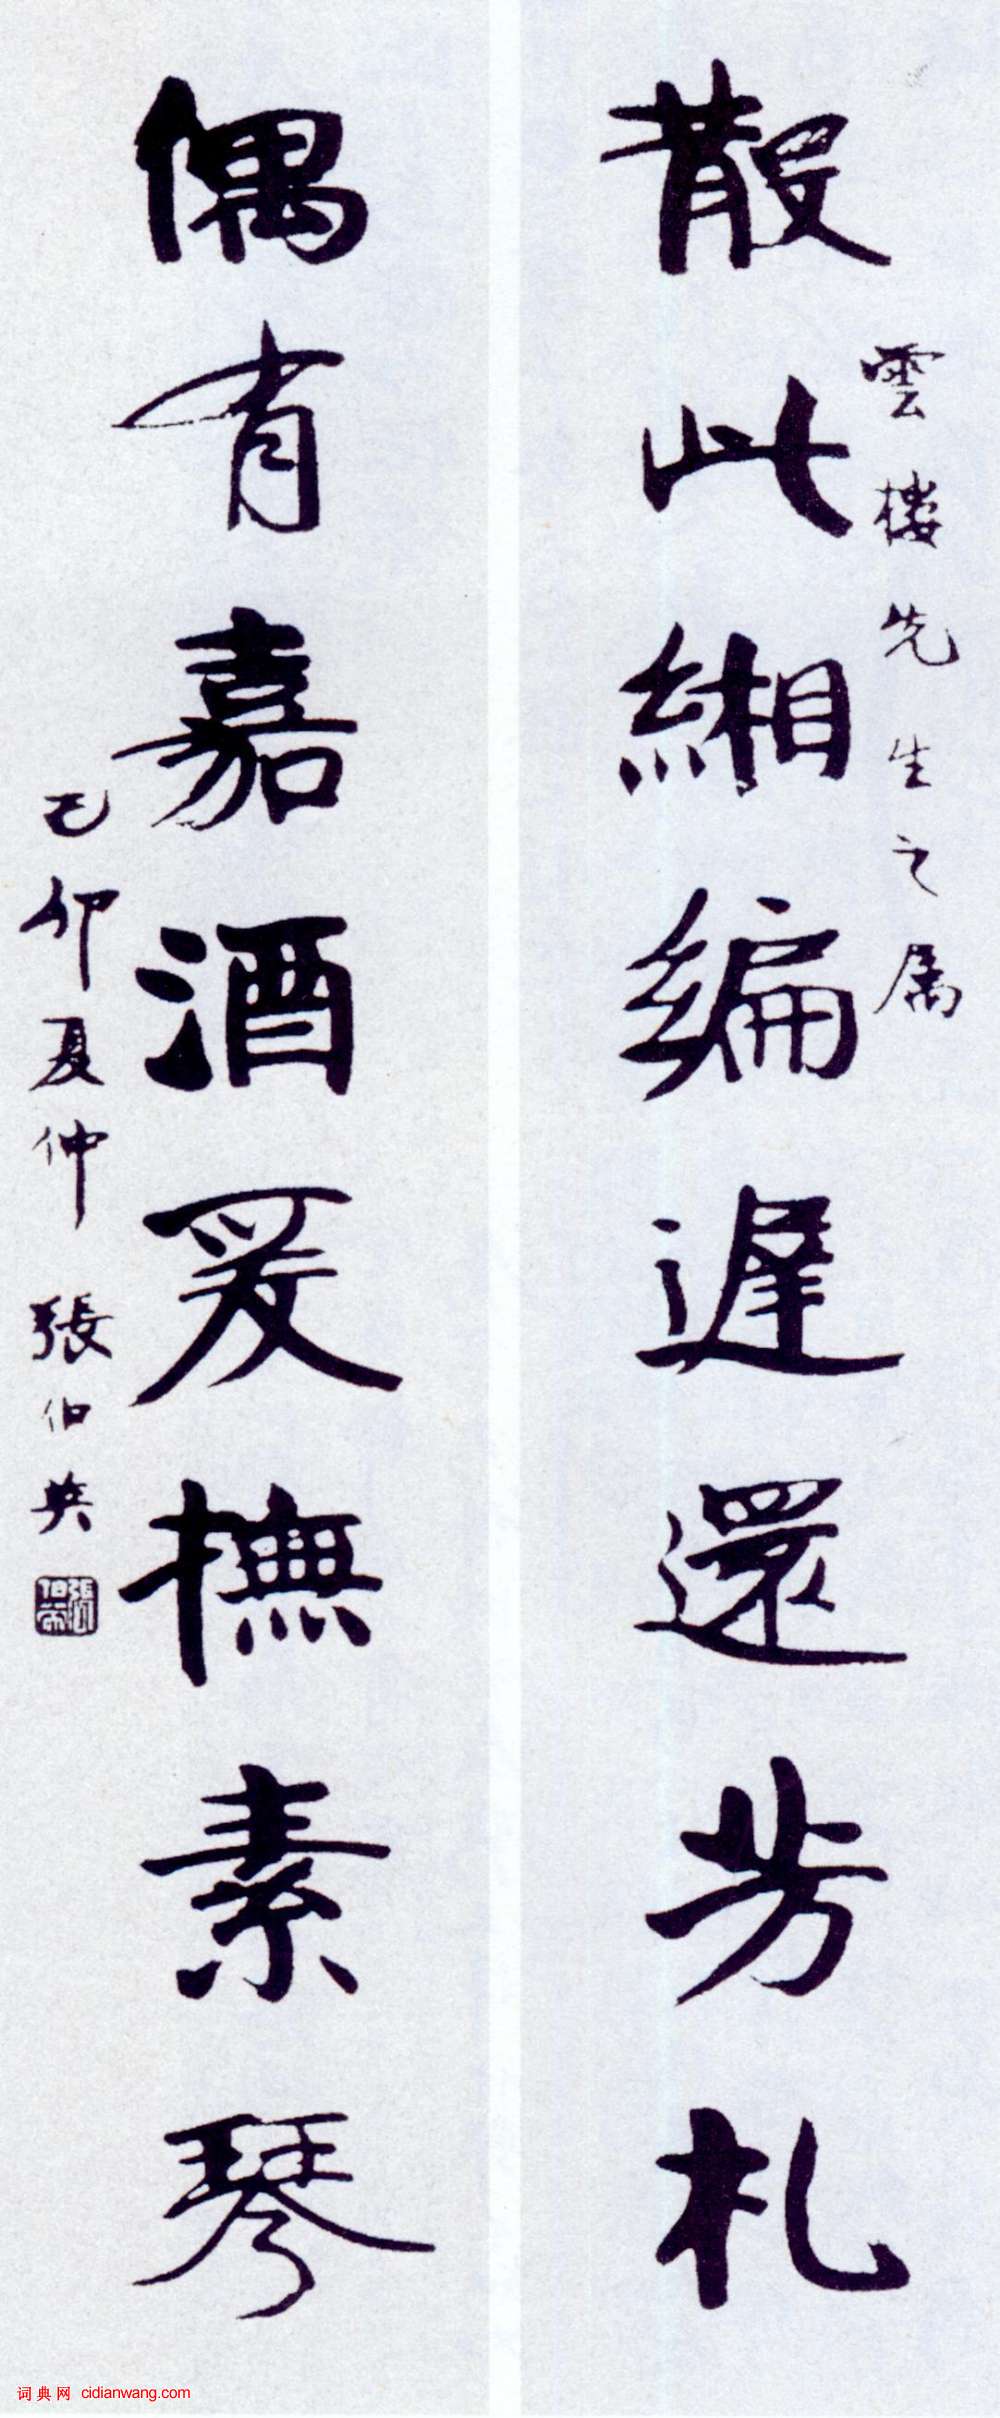 雲樓先生之属
散此緗編遲還芳札
偶有嘉酒爰撫素琴
己卯夏仲 張伯英
詞典网 cidianwang.com